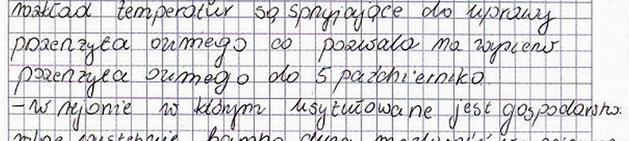 rozkład temperatur są sprzyjające do uprawy
pszenżyta ozimego co pozwala na
pszenżyta ozimego do 5 października
- w rejonie w którym usytułowane jest gospodarstwo.